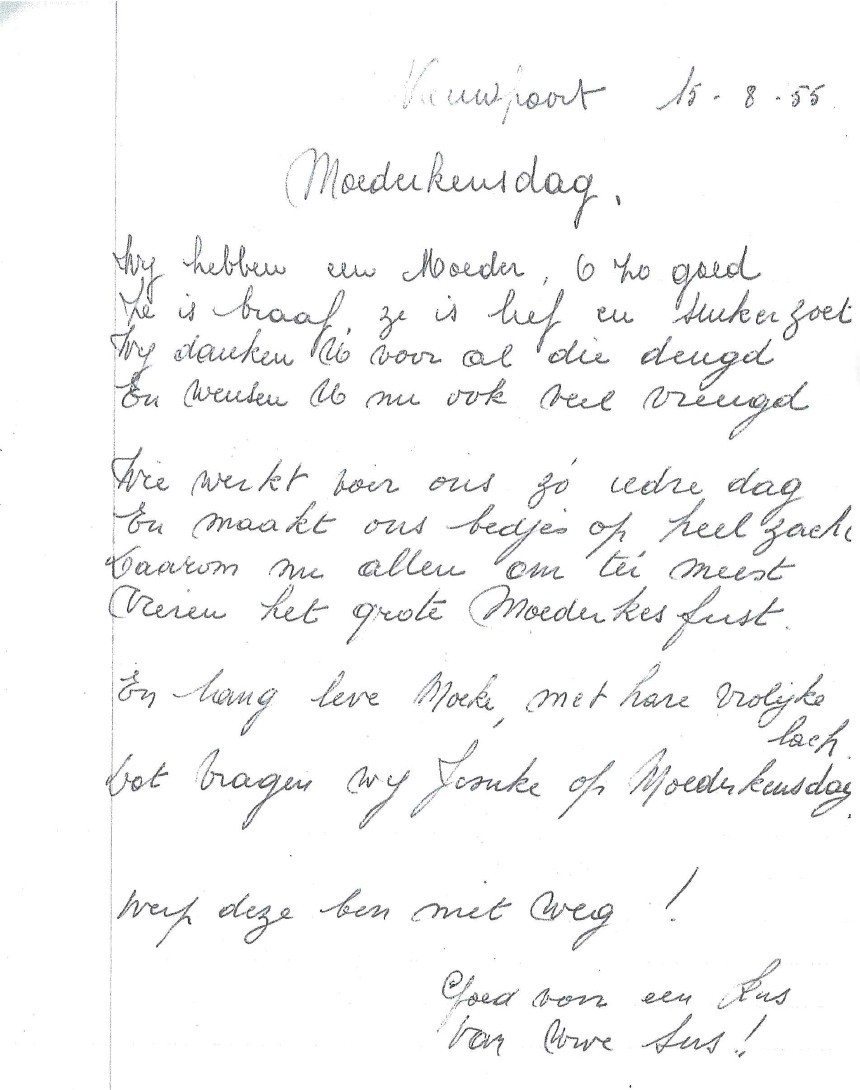 Nieuwpoort 15-8-55.
Moederkensdag.
Wy hebben een Moeder, O zo goed
Ze is braaf, ze is lief en suikerzoet
Wy danken U voor al die deugd
En wensen U nu ook veel vreugd
Wie werkt voor ons zó iedre dag
En maakt ons bedjes op heel zacht
Daarom nu allen om tei meest
Vieren het grote Moederkesfeest.
En lang leve Moeke, met hare vrolijke
lach.
Dat vragen wy Jesuke op Moederkensdag.
Werp deze bon niet weg !
Goed voor een Kus
van Uwe Sus!